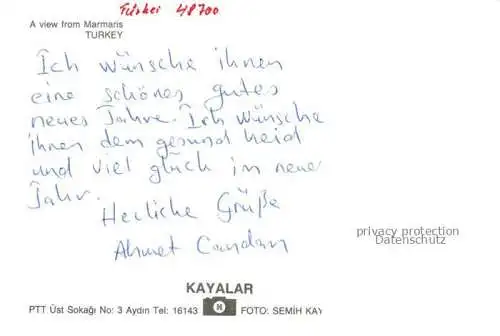 Türkei 48700
A view from Marmaris
TURKEY
Ich wünsche ihnen
eine schönes gutes
neues Jahre. Ich wünsche
ihnen dem gesund heid
und viel glück im neue
Jahr.
Herliche Grüße
Ahmet Candan
privacy protection
Datenschutz
KAYALAR
PTT Üst Sokağı No: 3 Aydın Tel: 16143 FOTO: SEMİH KAY